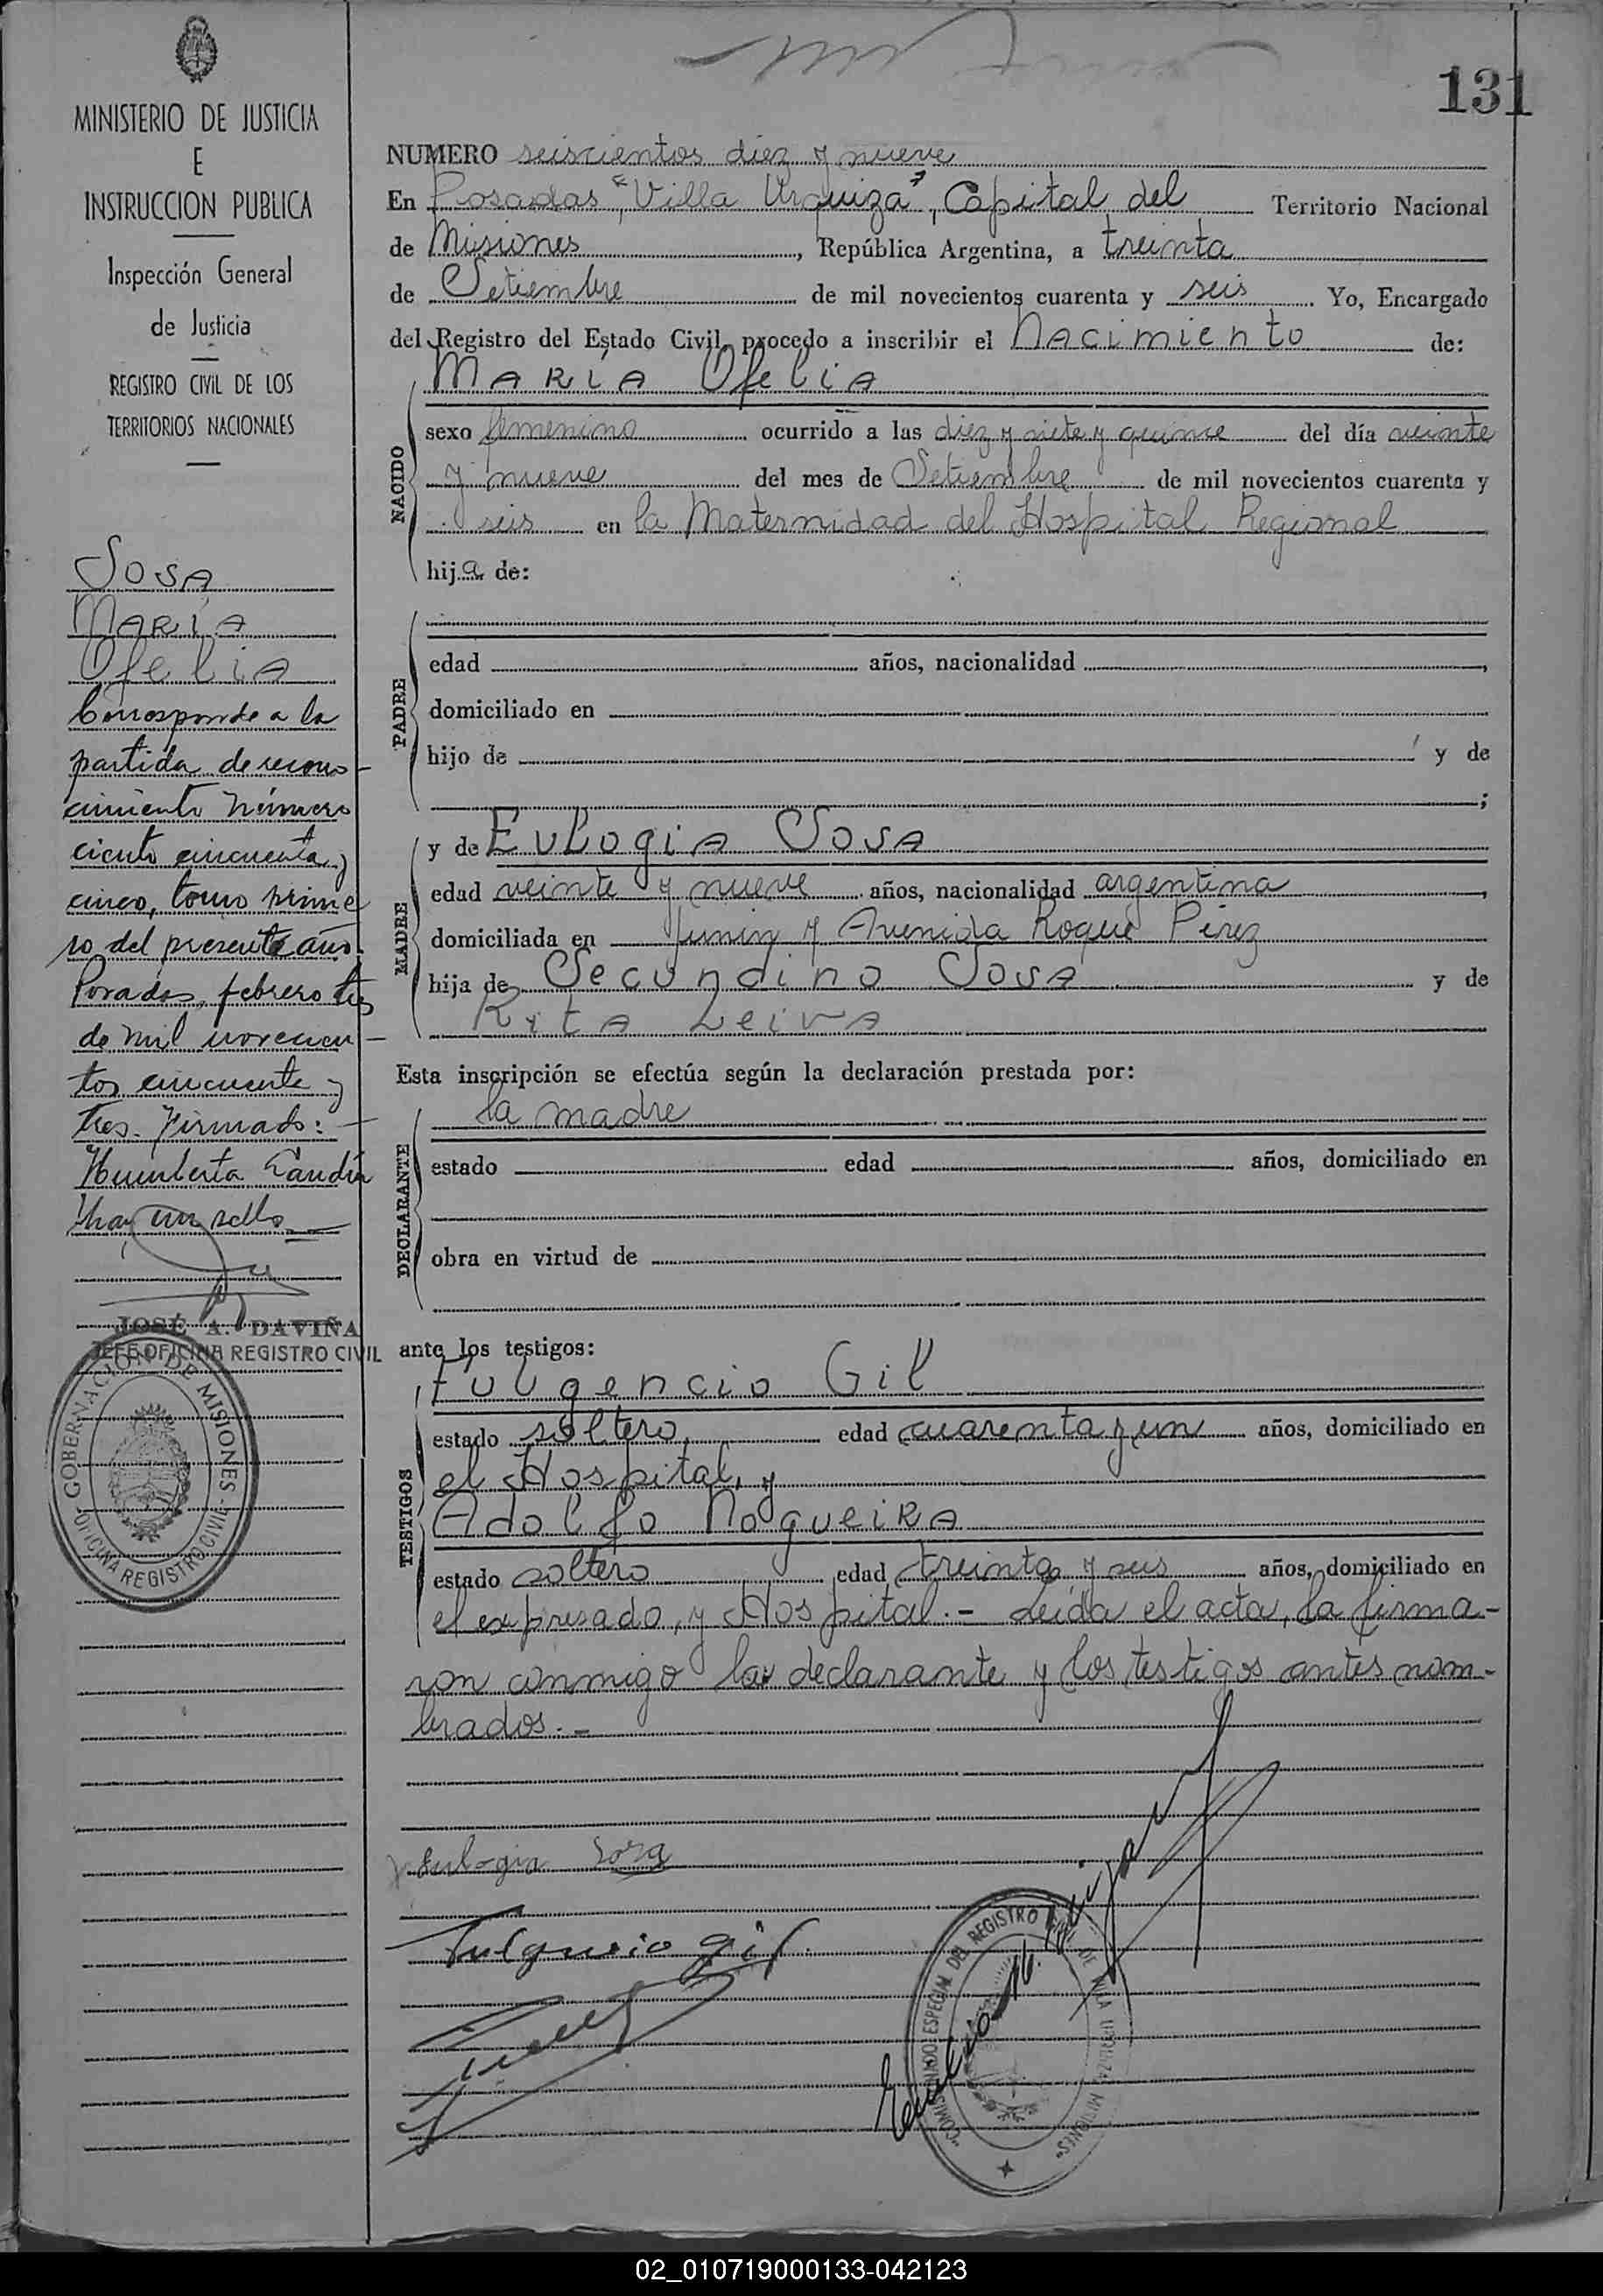 131
MINISTERIO DE JUSTICIA
E
INSTRUCCION PUBLICA
Inspección General
de Justicia
REGISTRO CIVIL DE LOS
TERRITORIOS NACIONALES
Sosa
María
Ofelia
Corresponde a la
partida de recono-
cimiento número
ciento cincuenta y
cinco, tomo prime
ro del presente año.
Posadas, febrero tres
de mil novecien-
tos cincuenta y
tres. Firmado:-
Humberto
Hay un sello
JOSÉ A. DAVIÑA
JEFE OFICINA REGISTRO CIVIL
GOBERNACION DE MISIONES - OFICINA REGISTRO CIVIL -
NUMERO seiscientos diez y nueve
En Posadas, "Villa Urquiza", Capital del Territorio Nacional
de Misiones, República Argentina, a treinta
de Setiembre de mil novecientos cuarenta y seis. Yo, Encargado
del Registro del Estado Civil, procedo a inscribir el Nacimiento de:
María Ofelia
NACIDO
sexo femenino ocurrido a las diez y siete y quince del día veinte
y nueve del mes de Setiembre de mil novecientos cuarenta y
seis en la Maternidad del Hospital Regional
hija de:
PADRE
edad años, nacionalidad,
domiciliado en
hijo de y de
;
MADRE
y de Eulogia Sosa
edad veinte y nueve años, nacionalidad argentina,
domiciliada en Junin y Avenida Roque Pérez
hija de Secundino Sosa y de
Rita Leiva
Esta inscripción se efectúa según la declaración prestada por:
DECLARANTE
la madre
estado edad años, domiciliado en
obra en virtud de
ante los testigos:
TESTIGOS
Fulgencio Gil
estado soltero, edad cuarenta y un años, domiciliado en
el Hospital, y
Adolfo Nogueira
estado soltero edad treinta y seis años, domiciliado en
el expresado, y Hospital.- Leida el acta, la firma-
ron conmigo la declarante y los testigos antes nom-
brados.-
Eulogia Sosa
Fulgencio Gil
"COMISIONADO ESPECIAL DEL REGISTRO CIVIL DE VILLA URQUIZA - MISIONES"
02_010719000133-042123